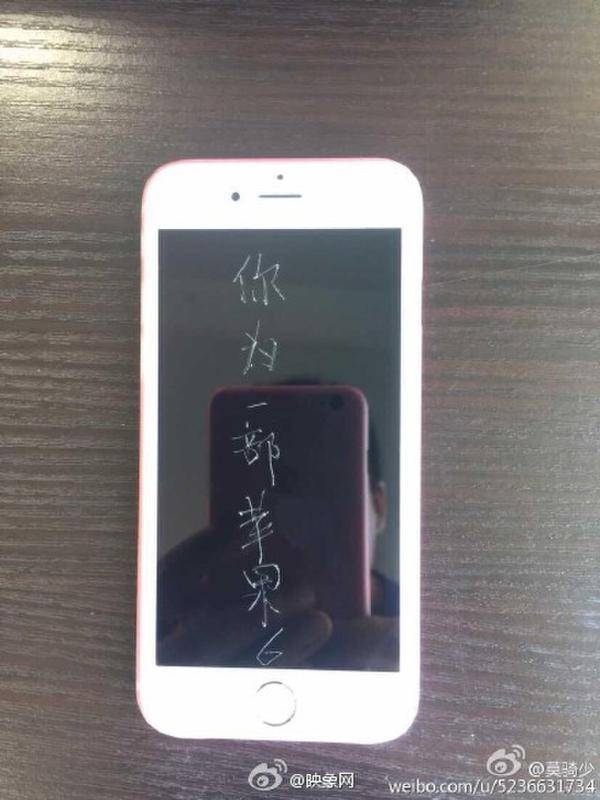 你为一部苹果6
@映象网
@莫骑少
weibo.com/u/5236631734